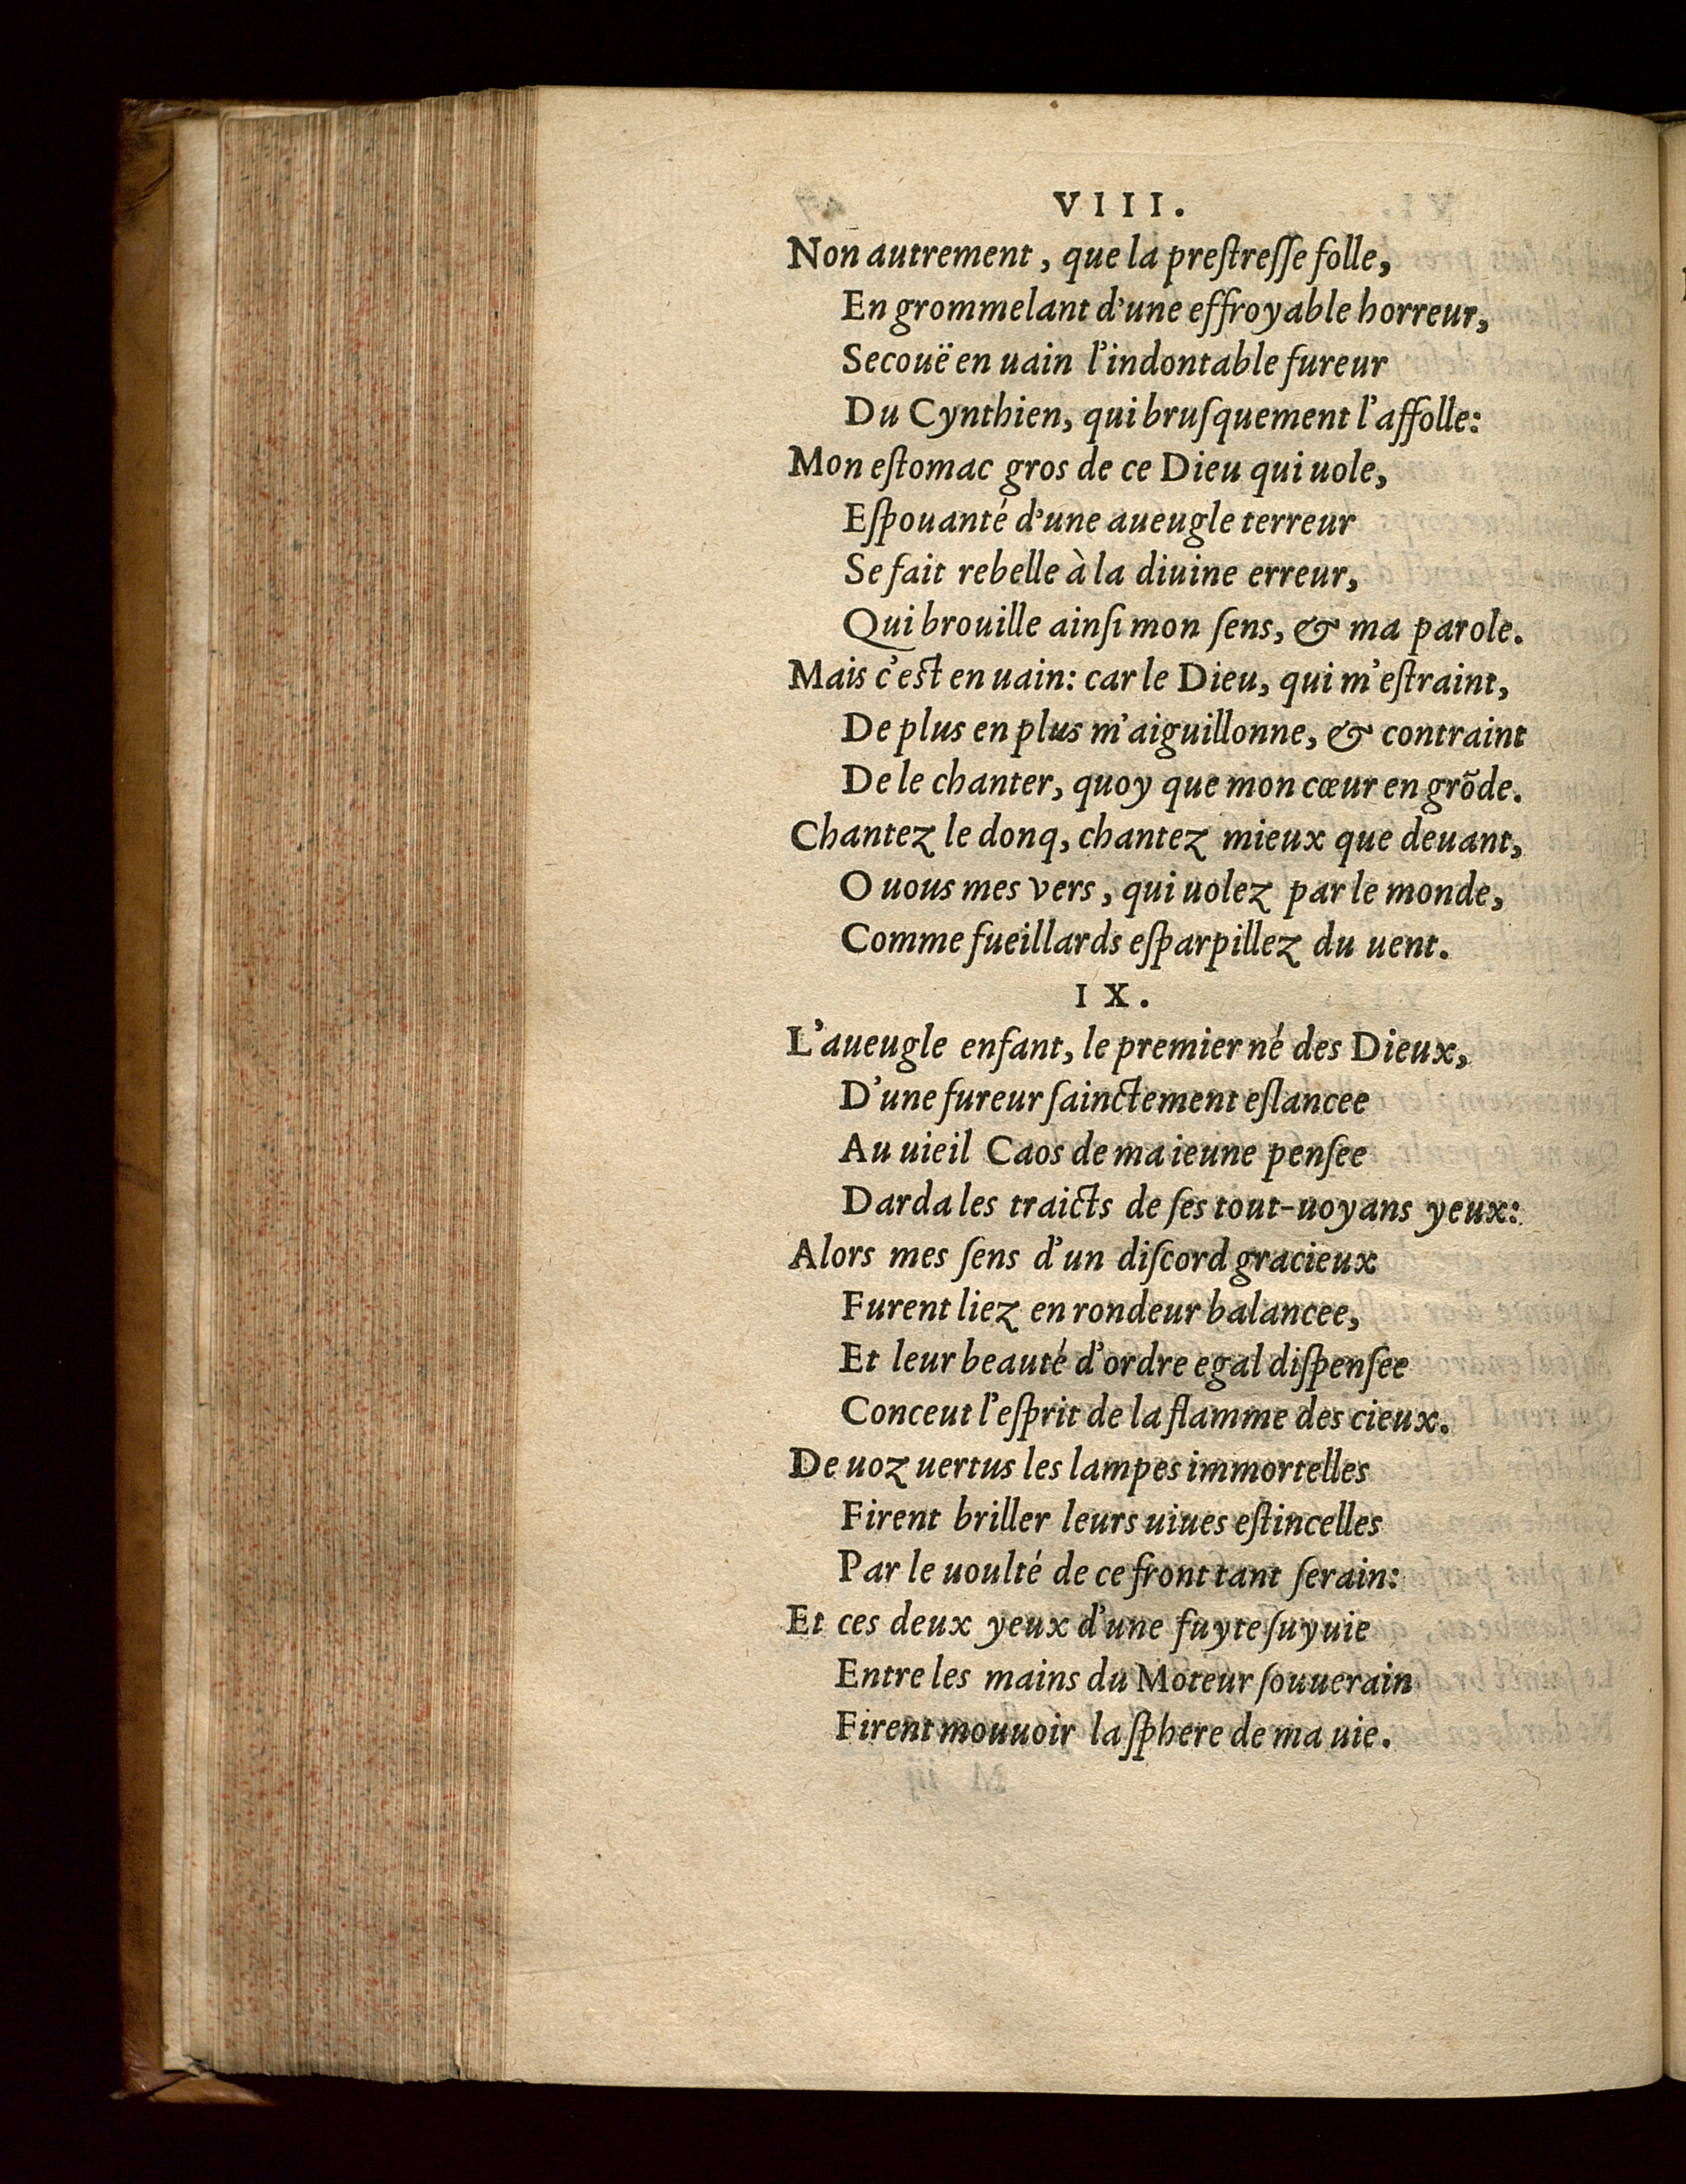 VIII.
Non autrement, que la preſtreſſe folle,
En grommelant d'une effroyable horreur,
Secouë en uain l'indontable fureur
Du Cynthien, qui bruſquement l'affolle:
Mon eſtomac gros de ce Dieu qui uole,
Eſpouanté d'une aueugle terreur
Se fait rebelle à la diuine erreur,
Qui brouille ainſi mon ſens, & ma parole.
Mais c'eſt en uain: car le Dieu, qui m'eſtraint,
De plus en plus m'aiguillonne, & contraint
De le chanter, quoy que mon cœur en grõde.
Chantez le donq, chantez mieux que deuant,
O uous mes vers, qui uolez par le monde,
Comme fueillards eſparpillez du uent.
IX.
L'aueugle enfant, le premier né des Dieux,
D'une fureur ſainctement eſlancee
Au uieil Caos de ma ieune penſee
Darda les traicts de ſes tout-uoyans yeux:
Alors mes ſens d'un diſcord gracieux
Furent liez en rondeur balancee,
Et leur beauté d'ordre egal diſpenſee
Conceut l'eſprit de la flamme des cieux.
De uoz uertus les lampes immortelles
Firent briller leurs uiues eſtincelles
Par le uoulté de ce front tant ſerain:
Et ces deux yeux d'une fuyte ſuyuie
Entre les mains du Moteur ſouuerain
Firent mouuoir la ſphere de ma uie.